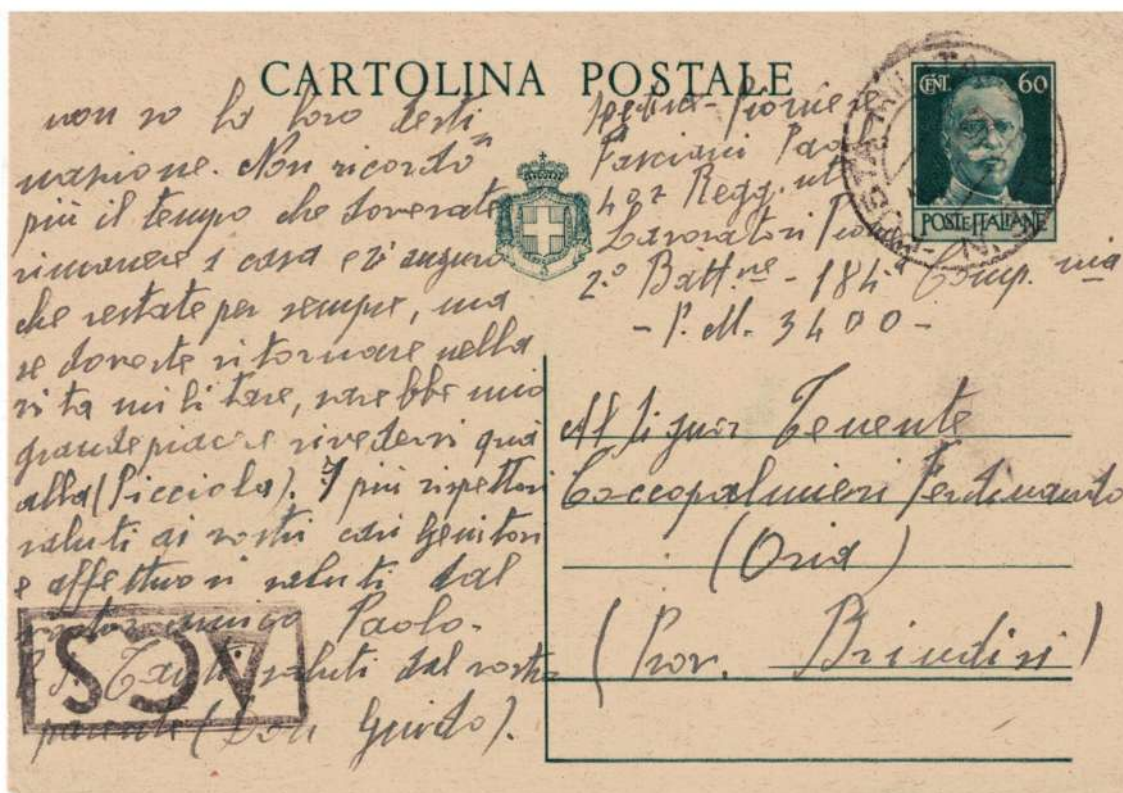 CARTOLINA POSTALE
CENT. 60
POSTE ITALIANE
non so la loro desti
nazione. Non ricordo
più il tempo che dovevate
rimanere a casa e vi auguro
che restate per sempre, ma
se doveste ritornare nella
vita militare, sarebbe mio
grande piacere rivedervi quà
alla (Picciola). I più rispettosi
saluti ai vostri cari genitori
e affettuosi saluti dal
vostro amico Paolo.
P.S. Tanti saluti dal vostro
parente (Don Guido).
Pioniere
Fasciani Pao
402 Regg.
Lavoratori
2° Batt.ne - 184ª Comp.
- P.M. 3400 -
Al Signor Tenente
Coccopalmieri Ferdinando
(Oria)
(Prov. Brindisi)
ACS